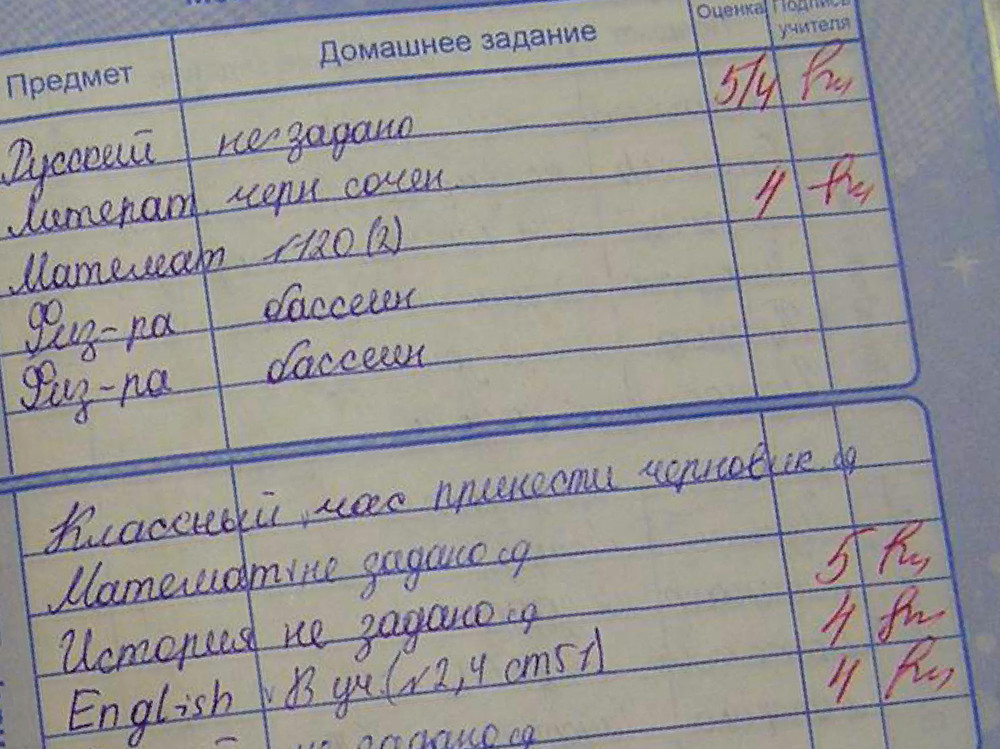 Предмет Домашнее задание Оценка Подпись учителя
Русский не задано 5/4
Литерат черн сочен 4
Математ №120 (2)
Физ-ра бассеин
Физ-ра бассеин
Классный час принести черновик
Математ не задано
История не задано 5
English В уч (№2,4 ст51) 4
4
не задано